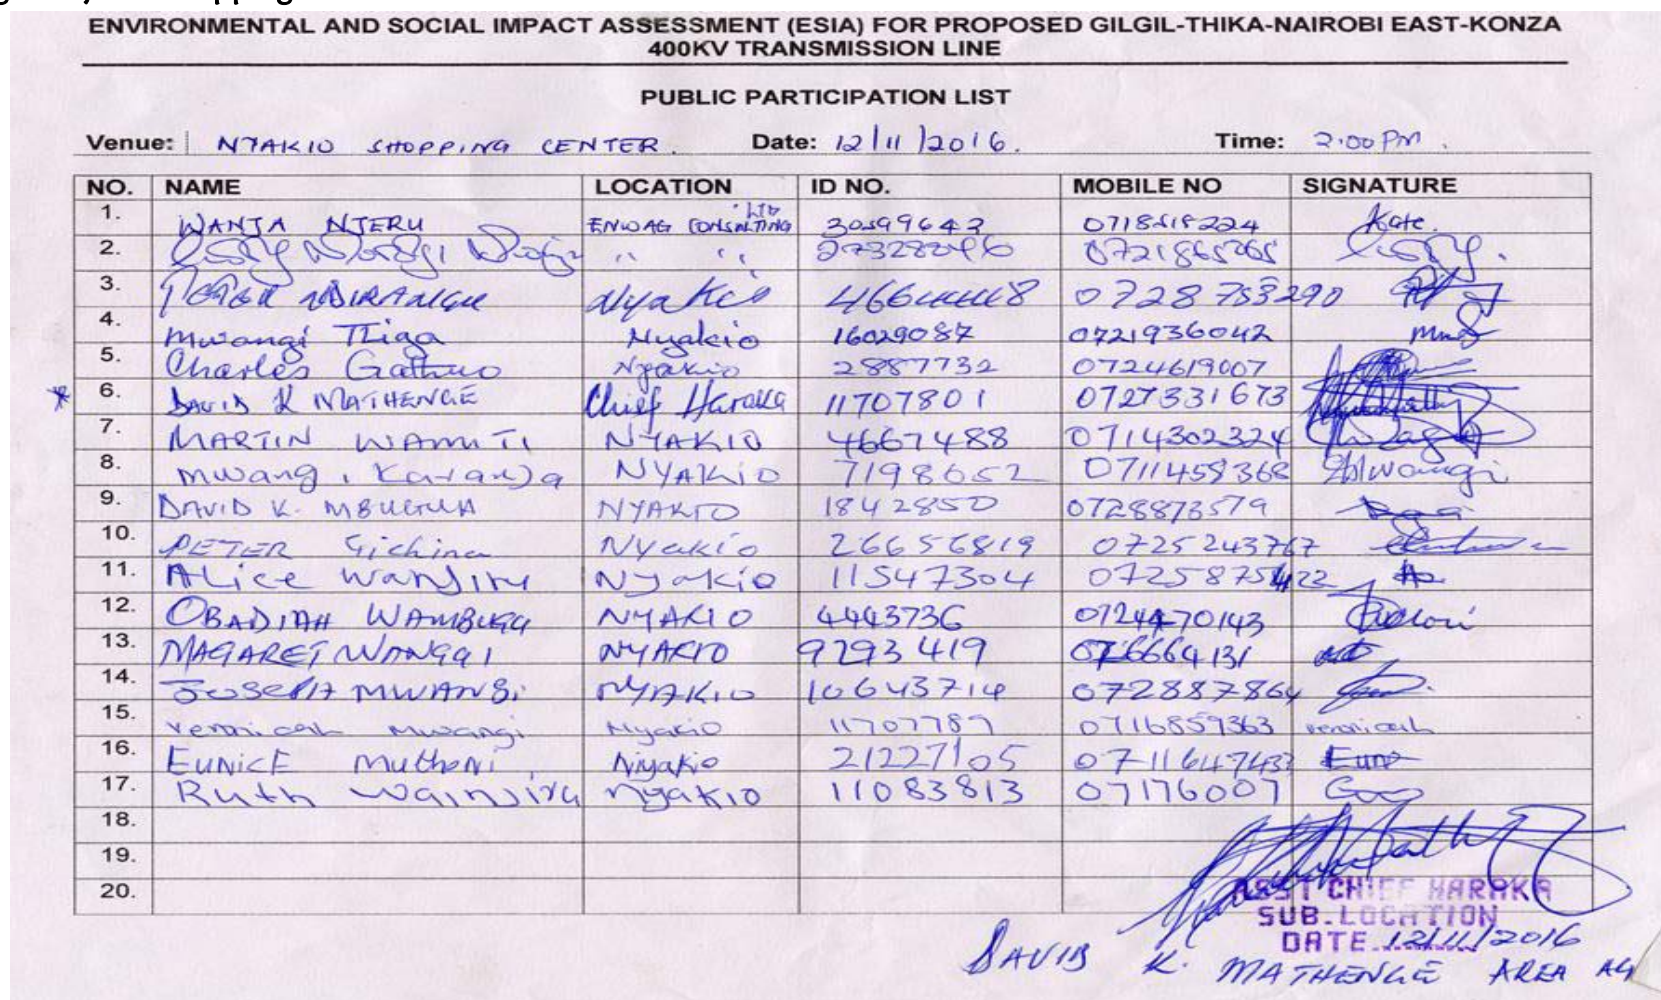 ENVIRONMENTAL AND SOCIAL IMPACT ASSESSMENT (ESIA) FOR PROPOSED GILGIL-THIKA-NAIROBI EAST-KONZA
400KV TRANSMISSION LINE
PUBLIC PARTICIPATION LIST
Venue: NYAKIO SHOPPING CENTER. Date: 12/11/2016. Time: 2:00 PM.
NO. NAME LOCATION ID NO. MOBILE NO SIGNATURE
1. WANJA NJERU ENWAG CONSULTING LTD 30599643 0718519224 Kate.
2. " "
3. NDIRANGU Nyakio 0728753290
4. Mwangi Thiga Nyakio 16029087 0721936042
5. Charles Nyakio 2887732 0724619007
* 6. DAVID K MATHENGE Chief Haraka 11707801 0727331673
7. MARTIN WAMUTI NYAKIO 4667488 0714302324
8. Mwangi Karanja NYAKIO 7198652 0711458368 Mwangi
9. DAVID K. MBUGUA NYAKIO 1842850 0728873579
10. PETER Gichina Nyakio 26656819 0725243767
11. Alice Wanjiru Nyakio 11547304
12. OBADIAH WAMBUGU NYAKIO 4443736
13. MAGARET WANGGI NYAKIO 9293419
14. JOSEPH MWANGI NYAKIO 10643714 072887864
15. veronicah mwangi Nyakio 11707789 0716859363 veronicah
16. EUNICE Mutheni Nyakio 21227105
17. Ruth Wainjiru nyakio 11083813 07176007
18.
19.
20.
ASST CHIEF HARAKA
SUB.LOCATION
DATE 12/11/2016
DAVID K. MATHENGE AREA